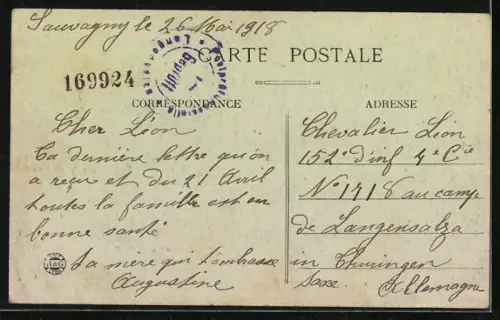 Sauvagny le 26 Mai 1918
CARTE POSTALE
169924
Geprüft
Langensalza
CORRESPONDANCE
ADRESSE
Cher Lion
Ta dernière lettre qu'on
a reçu et du 21 Avril
toutes la famille est en
bonne santé
Ta mère qui t'embrasse
Augustine
Chevalier Lion
152e d'inf 4e Cie
No 1418 au camp
de Langensalza
in Thuringen
Saxe. Allemagne